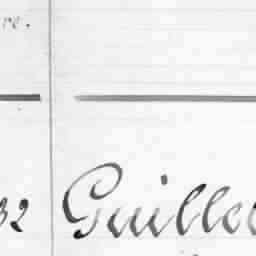 re.
32 Guille